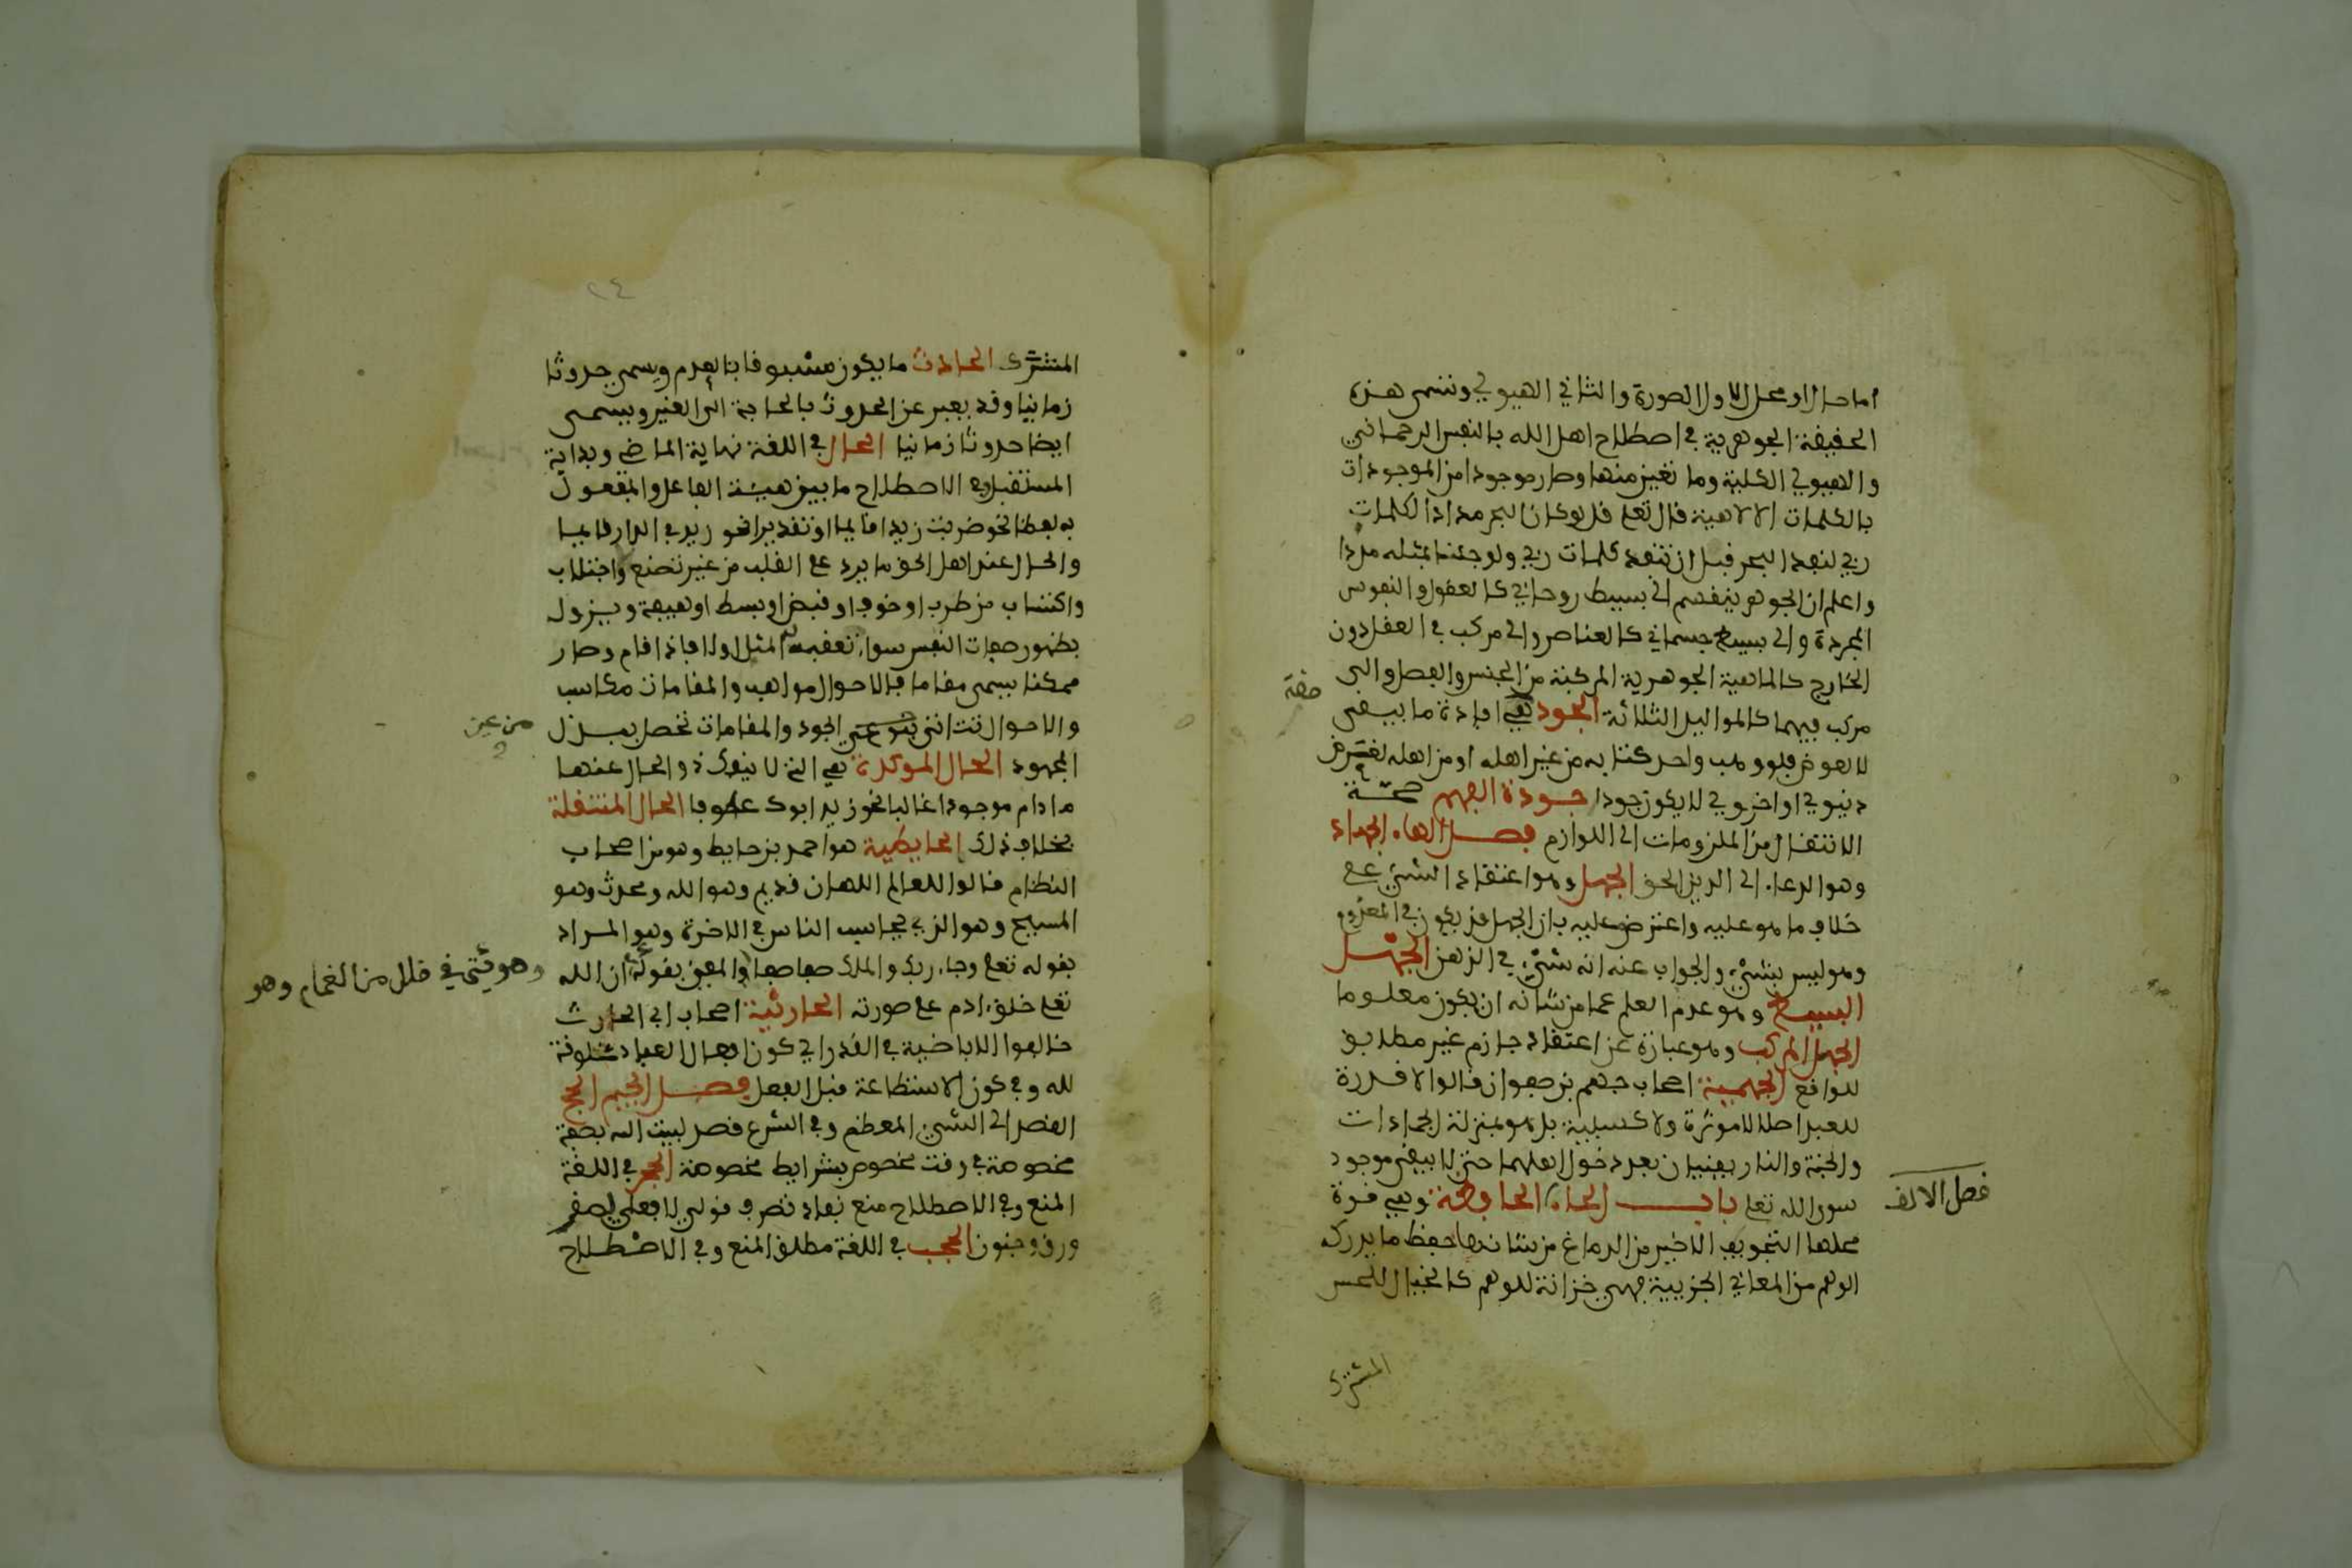 اما حال او محل الاول الصورة والثاني الهيولي وتسمى هذه
الحقيقة الجوهرية في اصطلاح اهل الله بالنفس الرحماني
والهيولي الكلية وما تعين منها وصار موجودا من الموجودات
بالكلمات الالاهية قال تعلى قل لو كان البحر مدادا لكلمات
ربي لنفد البحر قبل ان تنفد كلمات ربي ولو جئنا بمثله مددا
واعلم ان الجوهر ينقسم الى بسيط روحاني كالعقول والنفوس
المجردة والى بسيط جسماني كالعناصر والى مركب في العقل دون
الخارج كالماهية الجوهرية المركبة من الجنس والفصل والى
مركب فيهما كالمواليد الثلاثة الجود هي افادة ما ينبغى
صفة
لا لعوض فلو وهب واحد كتابه من غير اهله او من اهله لغرض
دنيوي او اخروي لا يكون جودا جودة الفهم صحة
الانتقال من الملزومات الى اللوازم فصل الهاء الجهاد
وهو الدعاء الى الدين الحق الجهل وهو اعتقاد الشيء على
خلاف ما هو عليه واعترض عليه بان الجهل قد يكون في المعدوم
وهو ليس بشيء والجواب عنه انه شيء في الذهن الجهل
البسيط وهو عدم العلم عما من شانه ان يكون معلوما
الجهل المركب وهو عبارة عن اعتقاد جازم غير مطابق
للواقع الجهمية اصحاب جهم بن صفوان قالوا لا قدرة
للعبد اصلا لا موثرة ولا كسبية بل هو بمنزلة الجمادات
والجنة والنار يفنيان بعد دخول اهلهما حتى لا يبقى موجود
سوى الله تعلى باب الحاء الحافظة وهي قوة
فصل الالف
محلها التجويف الاخير من الدماغ من شانها حفظ ما يدركه
الوهم من المعاني الجزيية فهي خزانة للوهم كالخيال للحس
المشترك
٢٤
المشترك الحادث ما يكون مسبوقا بالعدم ويسمى حدوثا
زمانيا وقد يعبر عن الحدوث بالحاجة الى الغير ويسمى
ايضا حدوثا زمانيا الحال في اللغة نهاية الماضي وبداية
المستقبل وفي الاصطلاح ما يبين هيئة الفاعل والمفعول
به لفظا نحو ضربت زيدا قايما او تقديرا نحو زيد في الدار قايما
والحال عند اهل الحق ما يرد على القلب من غير تصنع واجتلاب
واكتساب من طرب او خوف او قبض او بسط او هيبة ويزول
بظهور صفات النفس سواء تعقبه المثل اولا فاذا قام وصار
ممكنا يسمى مقاما فالاحوال مواهب والمقامات مكاسب
والاحوال تتاتى من عين الجود والمقامات تحصل ببذل
من عين
المجهود الحال الموكدة هي التي لا ينفك ذو الحال عنها
ما دام موجودا غالبا نحو زيد ابوك عطوفا الحال المنتقلة
بخلاف ذلك الحايطية هو احمد بن حايط وهو من اصحاب
النظام قالوا للعالم الاهان قديم وهو الله ومحدث وهو
المسيح وهو الذي يحاسب الناس في الاخرة وهو المراد
بقوله تعلى وجاء ربك والملك صفا صفا والمعني بقوله ان الله
وهو يتي في ظلل من الغمام وهو
تعلى خلق ادم على صورته الحارثية اصحاب ابي الحارث
خالفوا الاباضية في القدر اي كون افعال العباد مخلوقة
لله وفي كون الاستطاعة قبل الفعل فصل الجيم الحج
القصد الى الشيء المعظم وفي الشرع قصد لبيت الله بصفة
مخصوصة في وقت مخصوص بشرايط مخصوصة الحجر في اللغة
المنع وفي الاصطلاح منع نفاد تصرف قولي لا فعلي لصغر
ورق وجنون الحجب في اللغة مطلق المنع وفي الاصطلاح